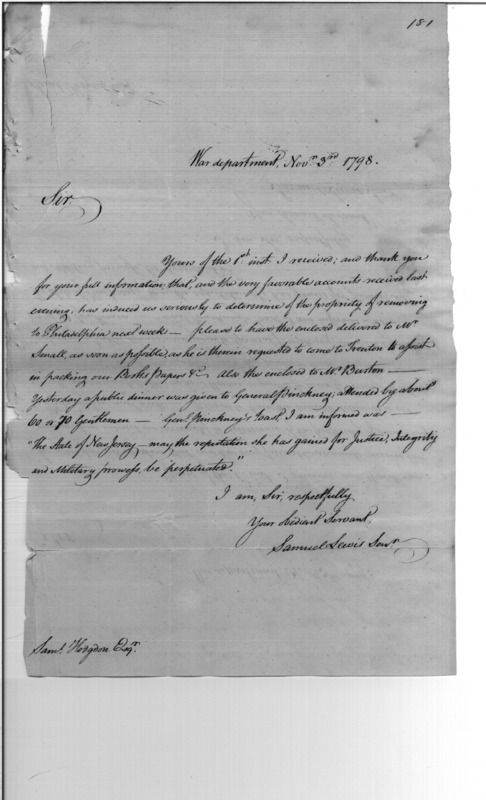 181
War department, Novr. 3rd 1798.
Sir,
Yours of the 1st inst. I received; and thank you
for your full information; that, and the very favorable accounts received last
evening, has induced us seriously to determine of the propriety of removing
to Philadelphia next week — please to have the enclosed delivered to Mr
Small, as soon as possible, as he is therein requested to come to Trenton to assist
in packing our Books Papers &c. Also the enclosed to Mr Burton —
Yesterday a public dinner was given to General Pinckney; attended by about
60 or 70 Gentlemen — Genl. Pinckney's toast, I am informed was —
"The State of New Jersey, may the reputation she has gained for Justice, Integrity
and Military prowess, be perpetuated."
I am, Sir, respectfully
Your Obedient Servant,
Samuel Lewis Senr.
Saml. Hodgdon Esqr.